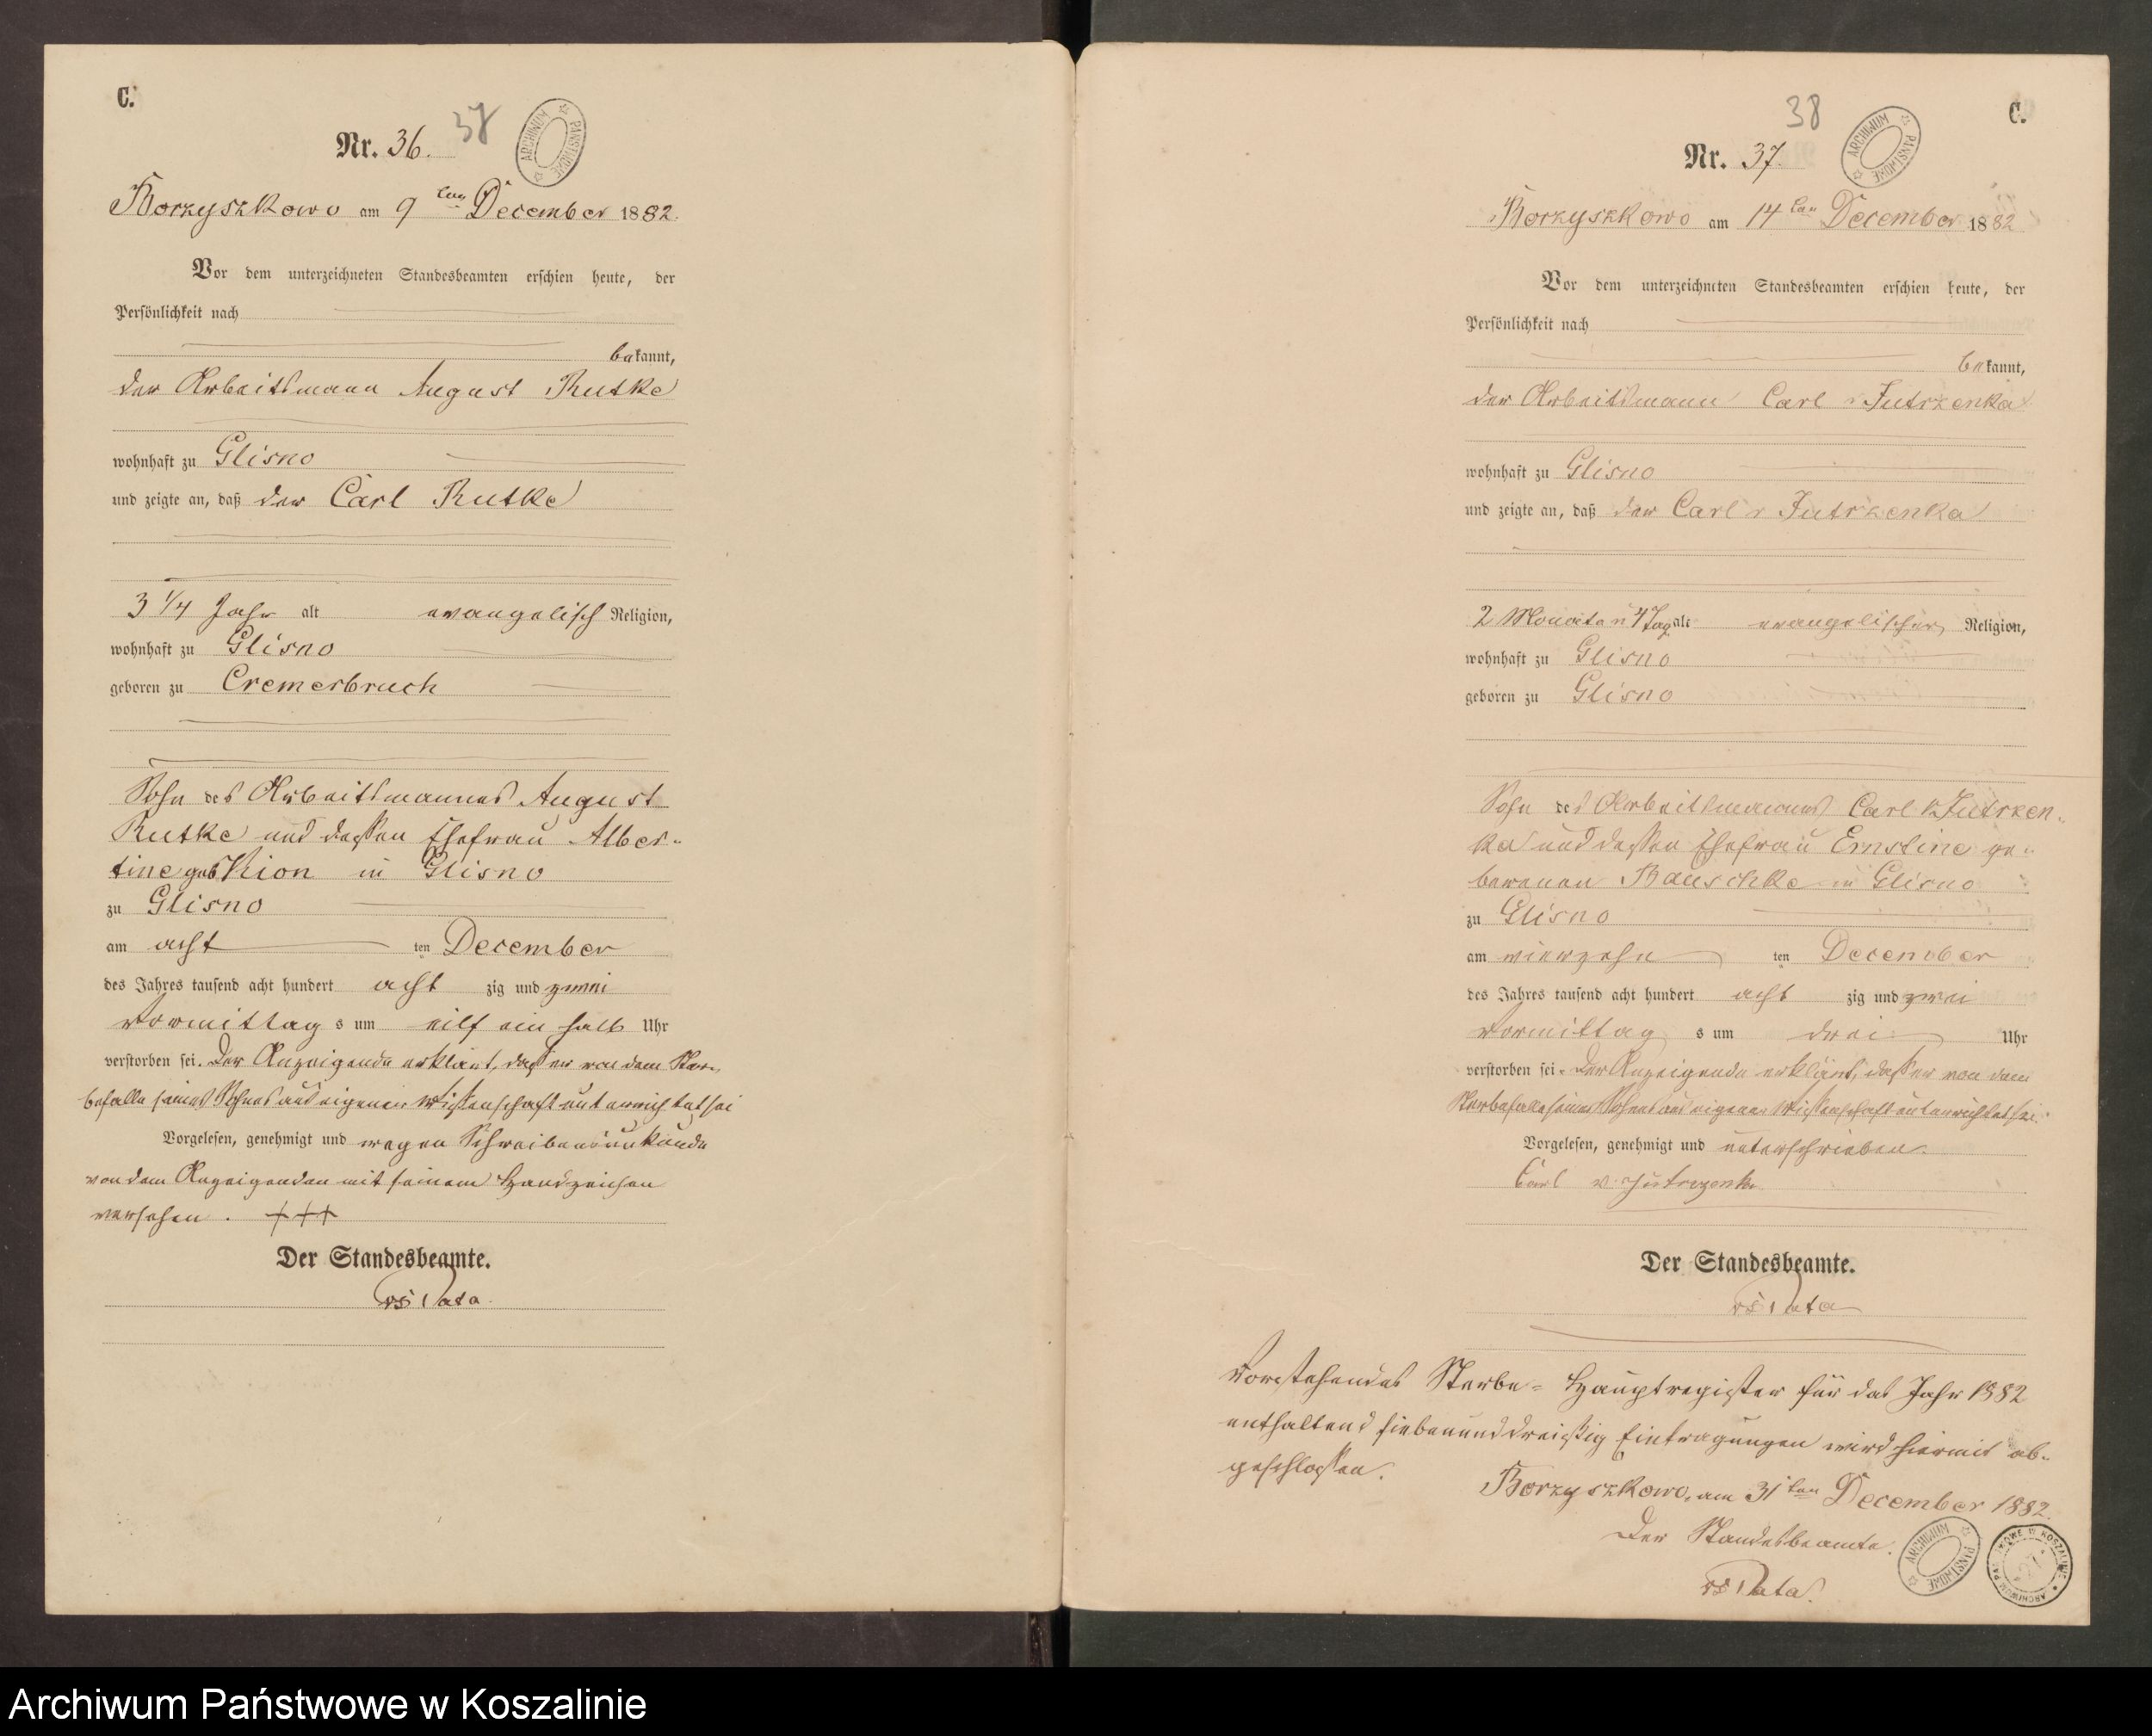 C.
Nr. 36. 37
ARCHIWUM PAŃSTWOWE
Borzyszkowo am 9ten December 1882.
Vor dem unterzeichneten Standesbeamten erschien heute, der
Persönlichkeit nach
bekannt,
der Arbeitsmann August Rutke
wohnhaft zu Glisno
und zeigte an, daß der Carl Rutke
3 1/4 Jahr alt evangelisch Religion,
wohnhaft zu Glisno
geboren zu Cremerbruch
Sohn des Arbeitsmannes August
Rutke und dessen Ehefrau Alber-
tine geb Kion in Glisno
zu Glisno
am acht ten December
des Jahres tausend acht hundert acht zig und zwei
Vormittag s um eilf ein halb Uhr
verstorben sei. Der Anzeigende erklärt, daß er von dem Ster-
befalle seines Sohnes aus eigener Wissenschaft unterrichtet sei
Vorgelesen, genehmigt und wegen Schreibensunkunde
von dem Anzeigenden mit seinem Handzeichen
versehen. +++
Der Standesbeamte.
C.
38
Nr. 37.
ARCHIWUM PAŃSTWOWE
Borzyszkowo am 14ten December 1882
Vor dem unterzeichneten Standesbeamten erschien heute, der
Persönlichkeit nach
bekannt,
der Arbeitsmann Carl v Jutrzenka
wohnhaft zu Glisno
und zeigte an, daß der Carl v Jutrzenka
2 Monate u 4 Tag alt evangelischer Religion,
wohnhaft zu Glisno
geboren zu Glisno
Sohn des Arbeitsmannes Carl v Jutrzen-
ka und dessen Ehefrau Ernstine ge-
borenen Bauschke in Glisno
zu Glisno
am vierzehn ten December
des Jahres tausend acht hundert acht zig und zwei
Vormittag s um drei Uhr
verstorben sei. Der Anzeigende erklärt, daß er von dem
Sterbefalle seines Sohnes aus eigener Wissenschaft unterrichtet sei.
Vorgelesen, genehmigt und unterschrieben.
Carl v. Jutrzenka
Der Standesbeamte.
Vorstehendes Sterbe-Hauptregister für das Jahr 1882
enthaltend siebenunddreißig Eintragungen wird hiermit ab-
geschlossen.
Borzyszkowo, am 31ten December 1882.
Der Standesbeamte.
ARCHIWUM PAŃSTWOWE
ARCHIWUM PAŃSTWOWE W KOSZALINIE
Archiwum Państwowe w Koszalinie